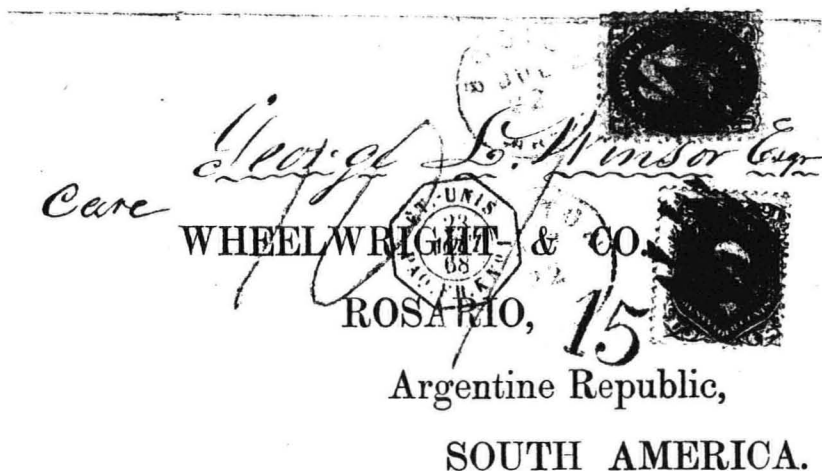 George L. Winsor Esqr
Care
WHEELWRIGHT & CO.
ROSARIO,
15
Argentine Republic,
SOUTH AMERICA.
ET.-UNIS
23
68